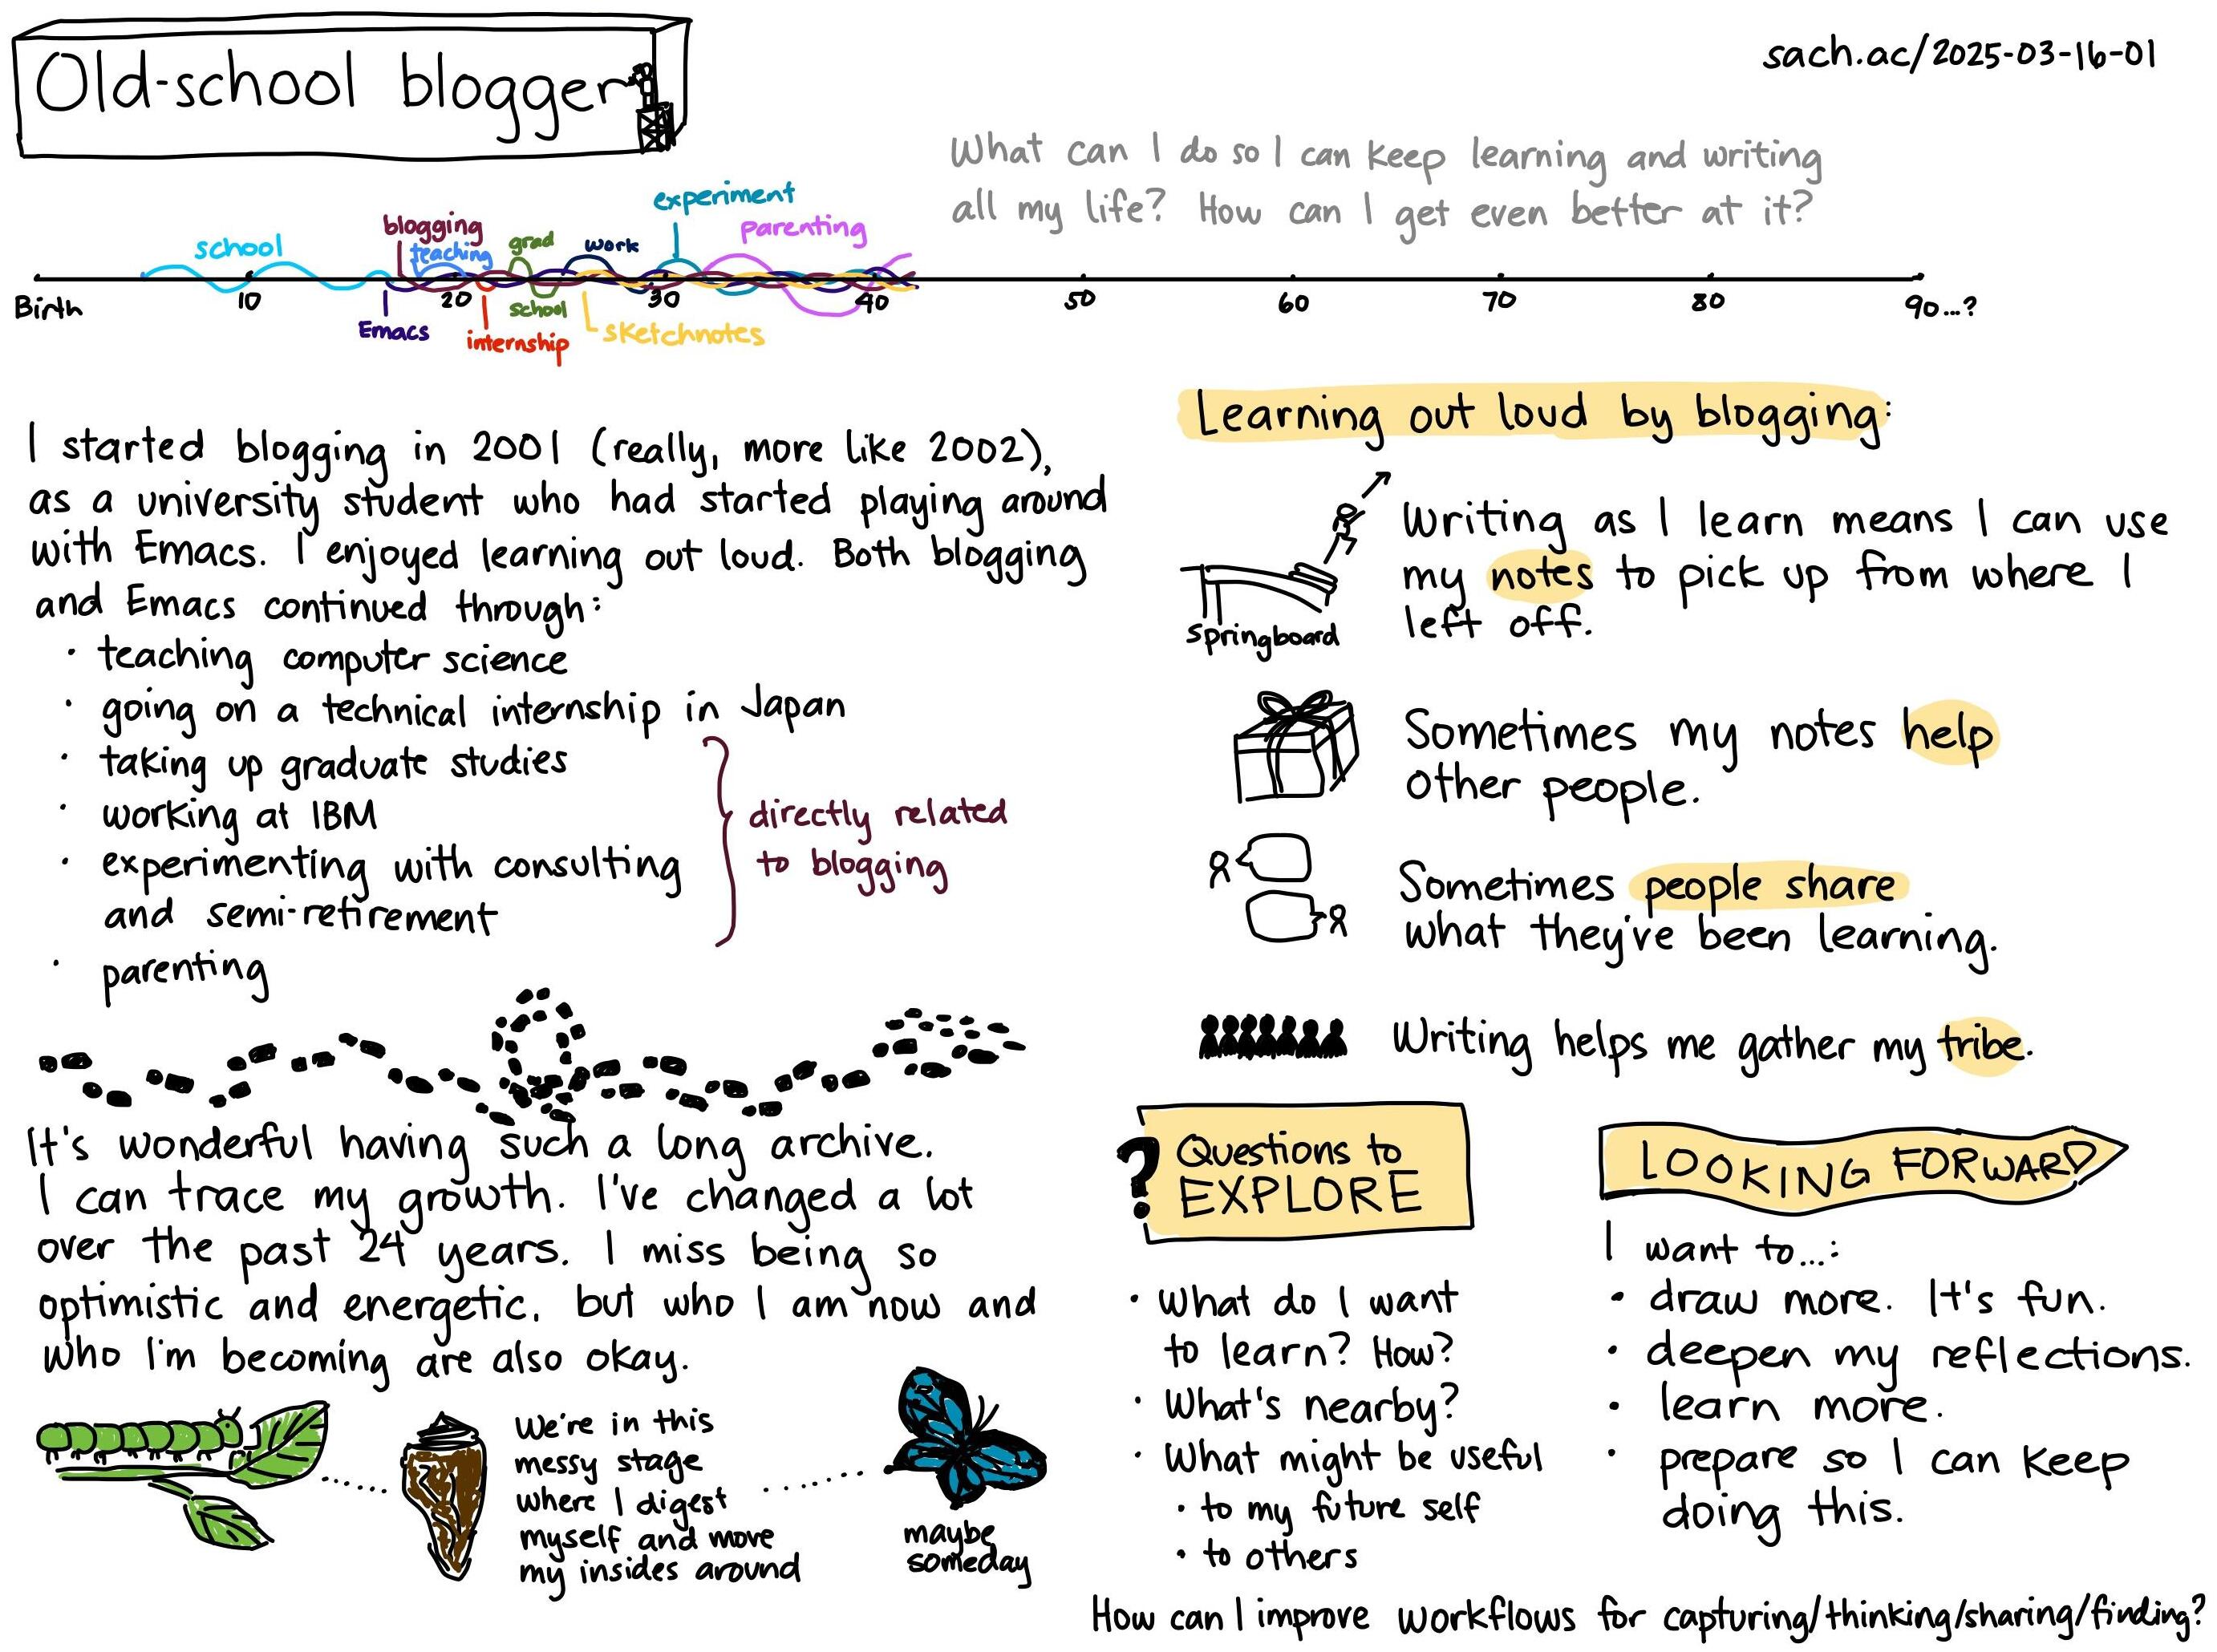 Old-school blogger
sach.ac/2025-03-16-01
What can I do so I can keep learning and writing
all my life? How can I get even better at it?
school
blogging
teaching
grad
school
work
experiment
parenting
Birth
10
20
30
40
50
60
70
80
90...?
Emacs
internship
sketchnotes
I started blogging in 2001 (really, more like 2002),
as a university student who had started playing around
with Emacs. I enjoyed learning out loud. Both blogging
and Emacs continued through:
· teaching computer science
· going on a technical internship in Japan
· taking up graduate studies
· working at IBM
· experimenting with consulting
and semi-retirement
· parenting
directly related
to blogging
It's wonderful having such a long archive.
I can trace my growth. I've changed a lot
over the past 24 years. I miss being so
optimistic and energetic, but who I am now and
who I'm becoming are also okay.
We're in this
messy stage
where I digest
myself and move
my insides around
maybe
someday
Learning out loud by blogging:
springboard
Writing as I learn means I can use
my notes to pick up from where I
left off.
Sometimes my notes help
other people.
Sometimes people share
what they've been learning.
Writing helps me gather my tribe.
? Questions to
EXPLORE
· What do I want
to learn? How?
· What's nearby?
· What might be useful
· to my future self
· to others
LOOKING FORWARD
I want to...:
· draw more. It's fun.
· deepen my reflections.
· learn more.
· prepare so I can keep
doing this.
How can I improve workflows for capturing/thinking/sharing/finding?